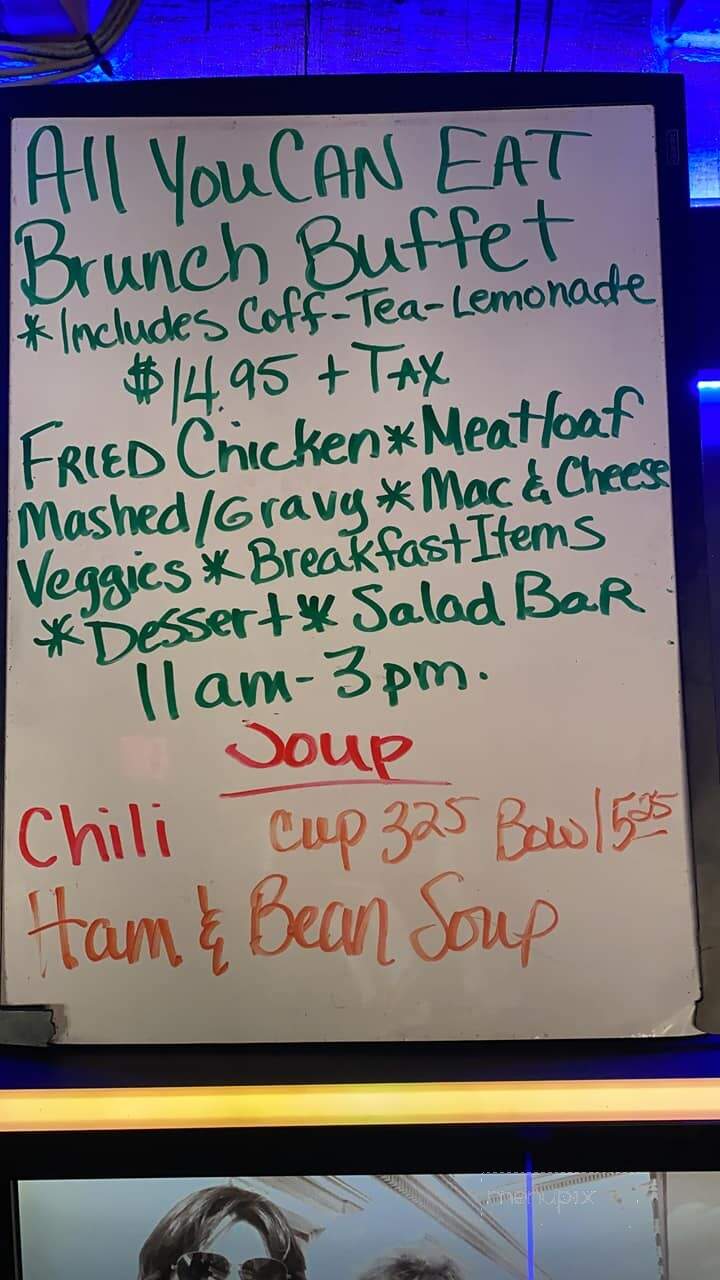 All You CAN EAT
Brunch Buffet
*Includes Coff-Tea-Lemonade
$14.95 + TAX
FRIED Chicken*Meatloaf
Mashed/Gravy*Mac & Cheese
Veggies*Breakfast Items
*Dessert*Salad BaR
11am-3pm.
Soup
Chili Cup 325 Bowl 525
Ham & Bean Soup
menupix